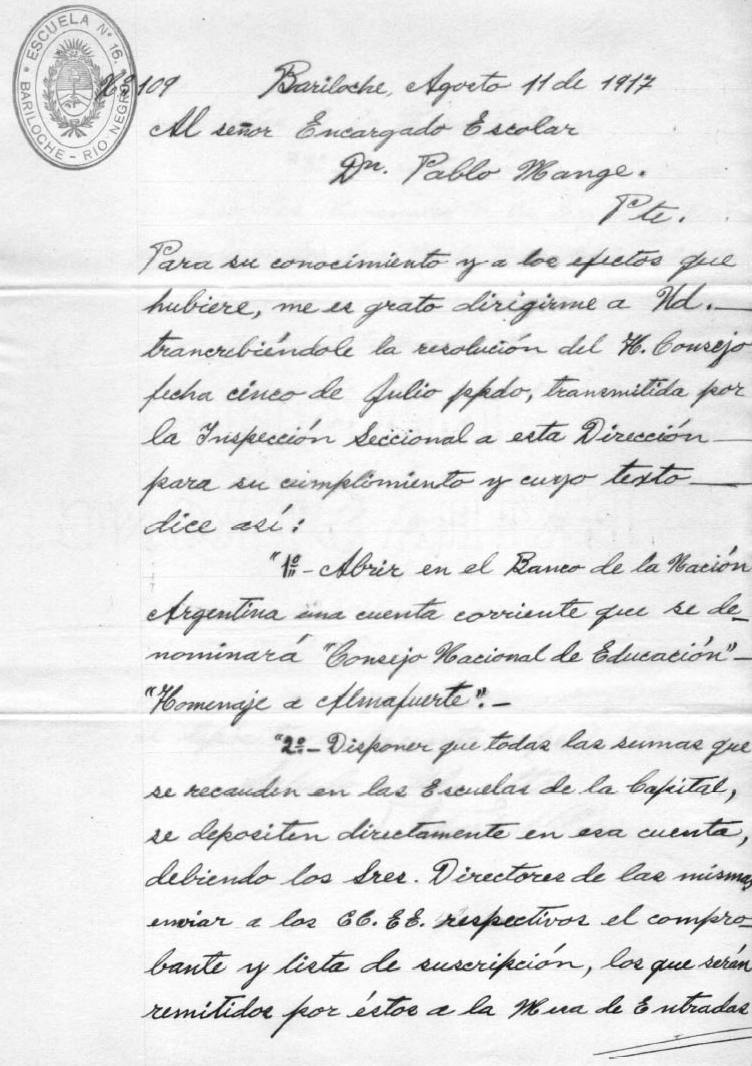 ESCUELA Nº 16.
BARILOCHE - RIO NEGRO
Nº 109 Bariloche, Agosto 11 de 1917
Al señor Encargado Escolar
Dn. Pablo Mange.
Pte.
Para su conocimiento y a los efectos que
hubiere, me es grato dirigirme a Ud.
trancribiéndole la resolución del H. Consejo
fecha cinco de Julio ppdo, transmitida por
la Inspección Seccional a esta Dirección
para su cumplimiento y cuyo texto
dice así:
"1º- Abrir en el Banco de la Nación
Argentina una cuenta corriente que se de-
nominará "Consejo Nacional de Educación"-
"Homenaje a Almafuerte".-
"2º- Disponer que todas las sumas que
se recauden en las Escuelas de la Capital,
se depositen directamente en esa cuenta,
debiendo los Sres. Directores de las mismas
enviar a los CC. EE. respectivos el compro-
bante y lista de suscripción, los que serán
remitidos por éstos a la Mesa de Entradas